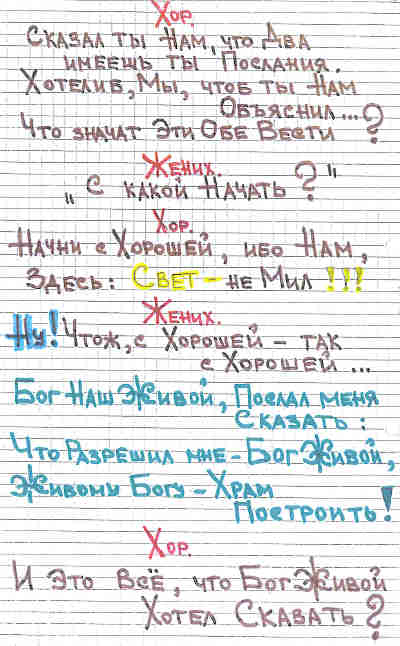 Хор.
Сказал ты Нам, что Два
имеешь ты Послания.
Хотелив, Мы, чтоб ты Нам
Объяснил...?
Что значат Эти Обе Вести
Жених.
„С какой Начать?"
Хор.
Начни с Хорошей, ибо Нам,
Здесь: Свет – не Мил!!!
Жених.
Ну! Чтож, с Хорошей – так
с Хорошей...
Бог Наш Живой, Послал меня
Сказать:
Что Разрешил мне – Бог Живой,
Живому Богу – Храм
Построить!
Хор.
И Это Всё, что Бог Живой
Хотел Сказать?